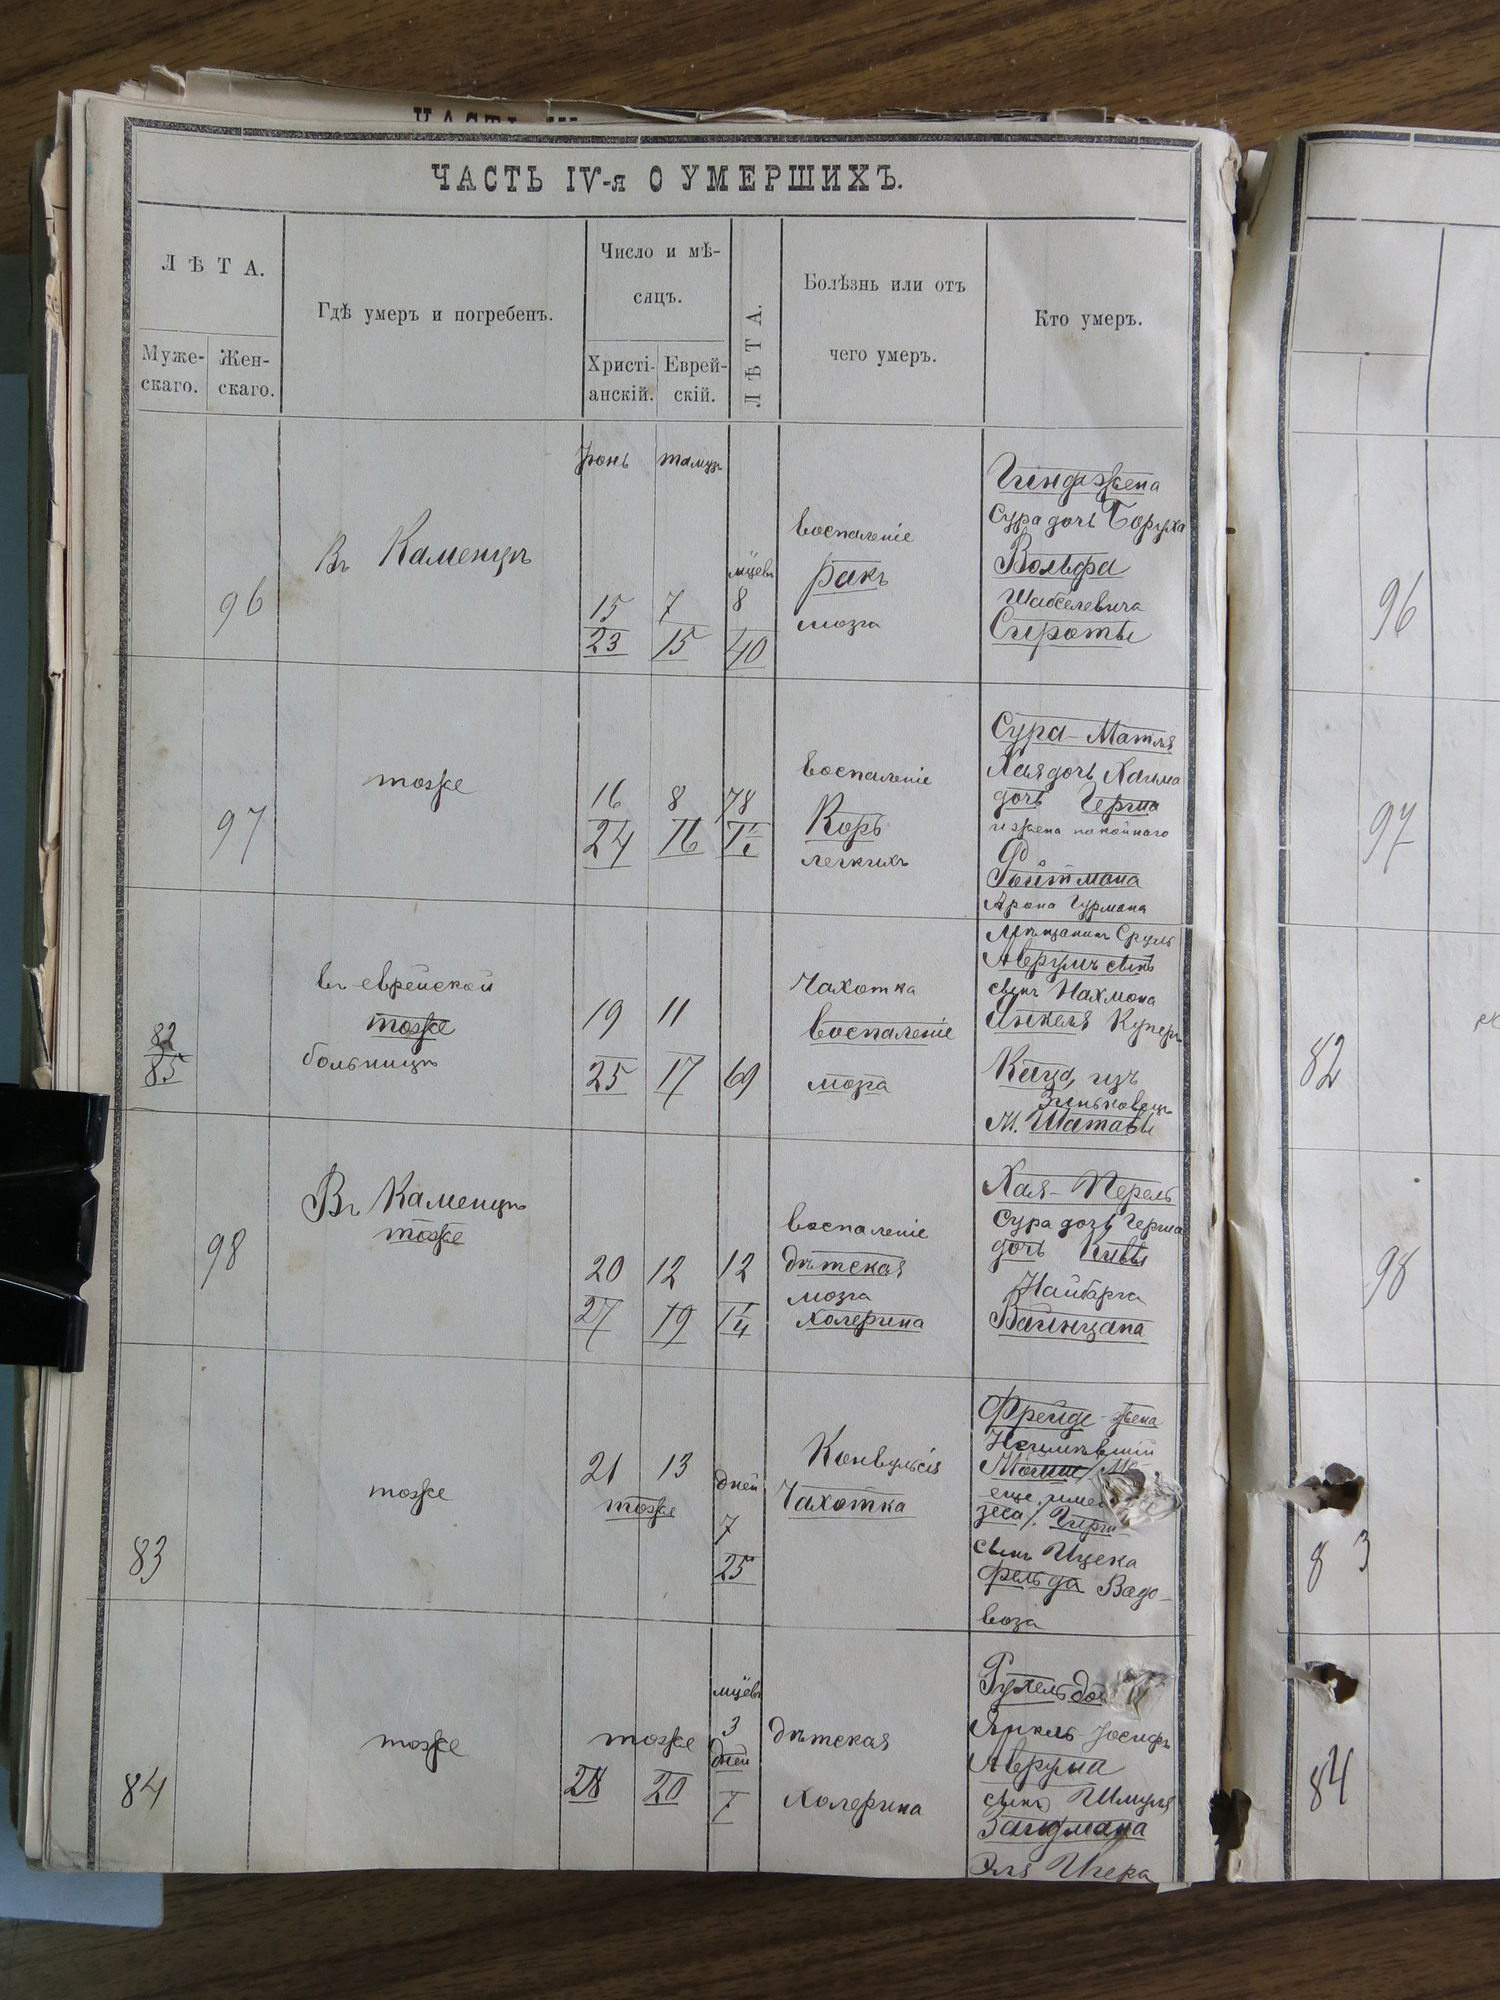 ЧАСТЬ IV-я О УМЕРШИХЪ.
ЛѢТА.
Муже-
скаго.
Жен-
скаго.
Гдѣ умеръ и погребенъ.
Число и мѣ-
сяцъ.
Христі-
анскій.
Еврей-
скій.
ЛѢТА.
Болѣзнь или отъ
чего умеръ.
Кто умеръ.
Іюнь
тамузъ
96
Въ Каменцѣ
15
23
7
15
мцевъ
8
40
воспаленіе
ракъ
мозга
жена
Сура дочь Боруха
Вольфа
Шабселевича
Сироты
96
97
тоже
16
24
8
16
78
воспаленіе
Корь
легкихъ
Сура-Матля
Хая дочь Хаима
дочь Герша
и жена покойнаго
Ройтмана
Арона Гурмана
97
82
85
въ еврейской
тоже
больницѣ
19
25
11
17
69
Чахотка
воспаленіе
мозга
Мѣщанинъ Сруль
Аврумъ сынъ
сынъ Нахмона
Янкеля Куперъ
Каца, изъ
Зиньковецъ
м. Шатавы
82
98
Въ Каменцѣ
тоже
20
27
12
19
12
воспаленіе
дѣтская
мозга
холерина
Хая-Перель
Сура дочь Герша
дочь
Вайнцапа
98
83
тоже
21
13
тоже
дней
7
25
Конвульсія
Чахотка
Фрейде жена
Неимѣвшій
еще имени
сынъ Ицека
фельда Вадо-
воза
83
84
тоже
тоже
28
20
мцевъ
3
дней
дѣтская
холерина
Рухель
Янкель Іосифъ
Аврума
сынъ Шмуля
Зайдмана
84